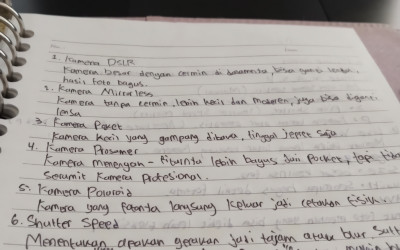 1. Kamera DSLR
Kamera besar dengan cermin di dalamnya, bisa ganti lensa,
hasil foto bagus.
2. Kamera Mirrorless
Kamera tanpa cermin, lebih kecil dan modern, juga bisa diganti
lensa
3. Kamera Poket
Kamera kecil yang gampang dibawa, tinggal jepret saja
4. Kamera Prosumer
Kamera menengah - fiturnya lebih bagus dari pocket, tapi tidak
serumit kamera profesional.
5. Kamera Polaroid
Kamera yang fotonya langsung keluar jadi cetakan fisik.
6. Shutter Speed
Menentukan apakah gerakan jadi tajam atau blur